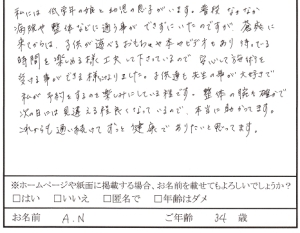 私には 低学年の娘と幼児の息子がいます。普段 なかなか
病院や 整体などに通う事が できずにいたのですが、
来てからは、子供が遊べるおもちゃや本やビデオもあり 待っている
時間を楽しめる様 工夫して下さっているので 安心して
受ける事ができる様になりました。子供達も先生の事が大好きで
私が予約をするのを楽しみにしている程です。整体の腕も確かで
次の日には見違える程良くなっているので、本当に助かってます。
これからも通い続けて ずっと 健康でありたいと思ってます。
※ホームページや紙面に掲載する場合、お名前を載せてもよろしいでしょうか？
□はい □いいえ □匿名で □年齢はダメ
お名前 A.N ご年齢 34 歳